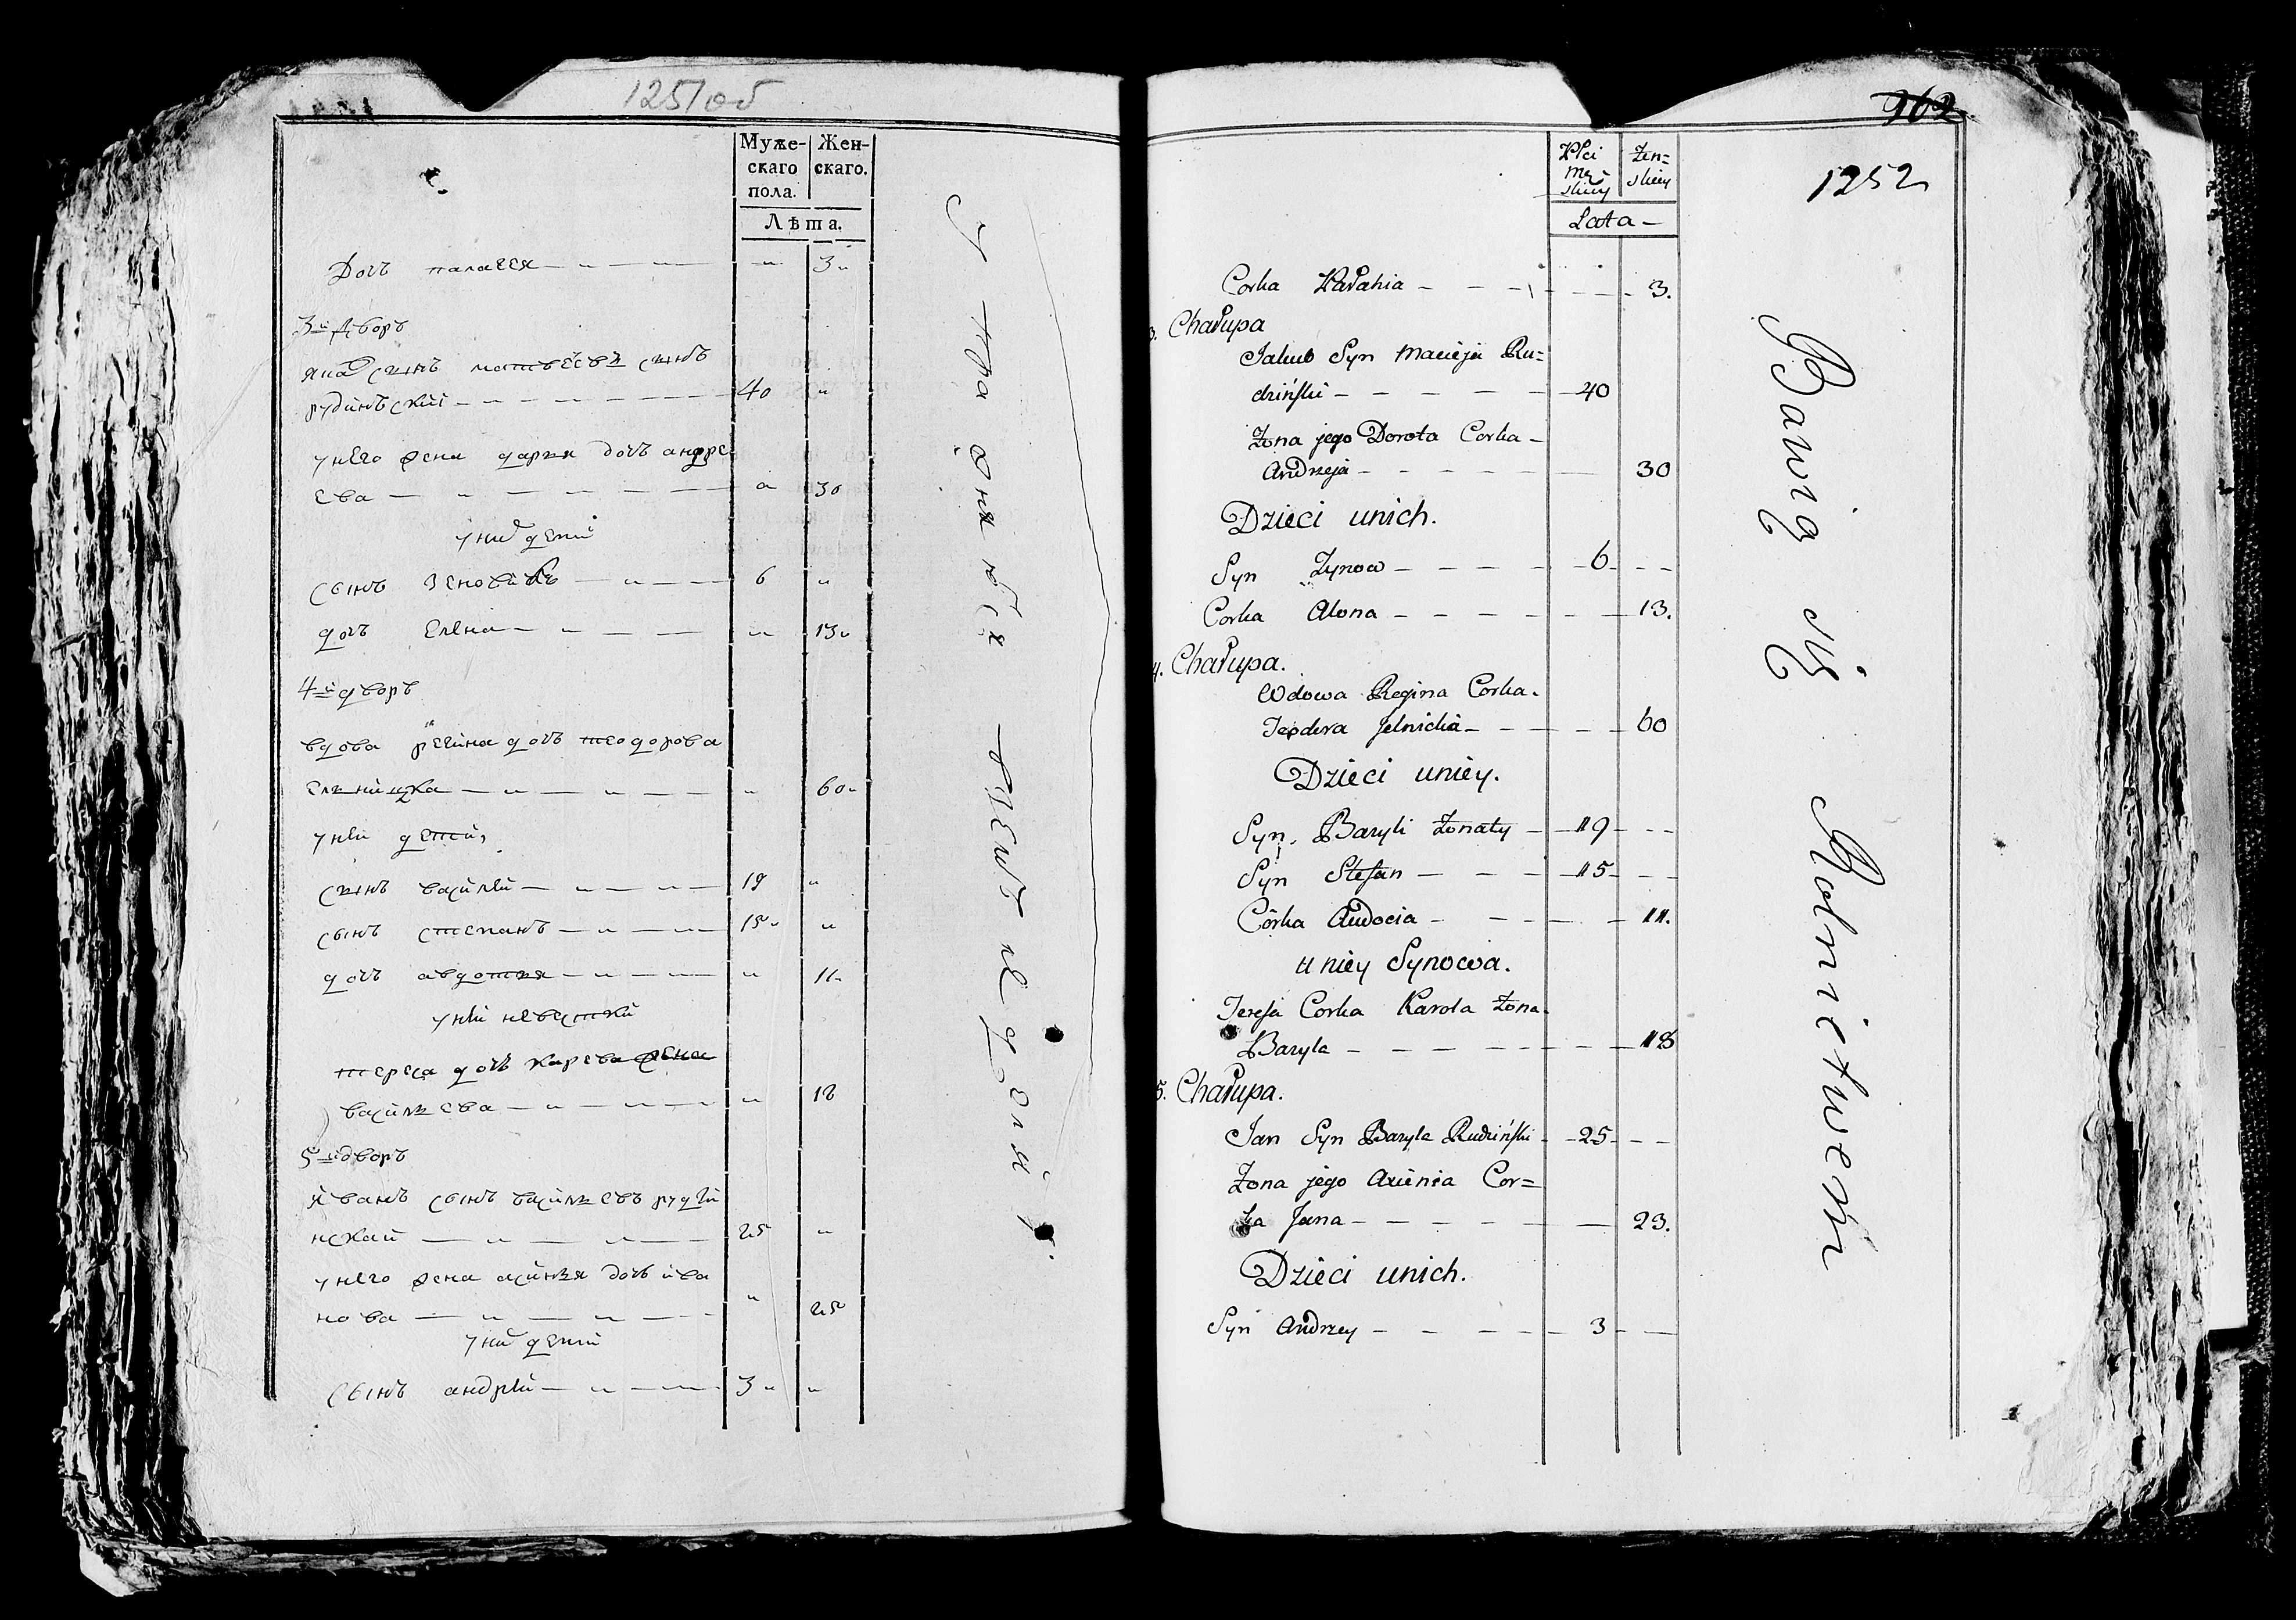 1251об
Муже-
скаго
пола.
Жен-
скаго.
Лѣта.
Дочь палагея — „ — „ 3„
3й дворъ
сынъ матвѣевъ сынъ
рудинъский — „ — 40 „
унего жена дарья дочь андре
ева — „ — „ 30
уних детей
сынъ — „ — 6 „
дочь елена — „ — „ 13„
4й дворъ
вдова регина дочь теодорова
— „ — „ 60„
уней детей,
сынъ василей — „ — 19 „
сынъ степанъ — „ — 15„ „
дочь авдотья — „ — „ 11„
уней невестки
тереса дочь карева жена
васильева — „ — „ 18
5й дворъ
иванъ сынъ васильевъ руди
нскай — „ — 25 „
унего жена аксинья дочь ива
нова — „ — „ 25
уних детей
сынъ андрей — „ — 3„ „
262
1252
Płci
mę
skiey
żen=
skiey
Lata —
Corka Pałahia — — — 3.
3. Chałupa
Jakub Syn Macieja Ru=
dziński — — — 40
Żona jego Dorota Corka —
Andrzeja — — — 30
Dzieci unich.
Syn Zynow — — — 6 - -
Corka Alona — — — 13.
4. Chałupa.
Wdowa Regina Corka.
Teodora Jelnicka — — — 60
Dzieci uniey.
Syn, Bazyli Żonaty — 19 - -
Syn Stefan — — — 15 - -
Córka Audocia — — — 11.
uniey Synowa.
Teresa Corka Karola Żona.
Bazyla — — — 18
5. Chałupa.
Jan Syn Bazyla Rudziński - 25 - -
Żona jego Axienia Cor=
ka Jana — — — 23.
Dzieci unich.
Syn Andrzey — — — 3 - —
Bawią się Rolnictwem